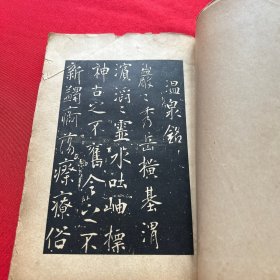 温泉銘
巖〻秀岳橫基渭
濱滔〻靈水吐岫標
神古之不舊今之不
新蠲痾蕩瘵療俗